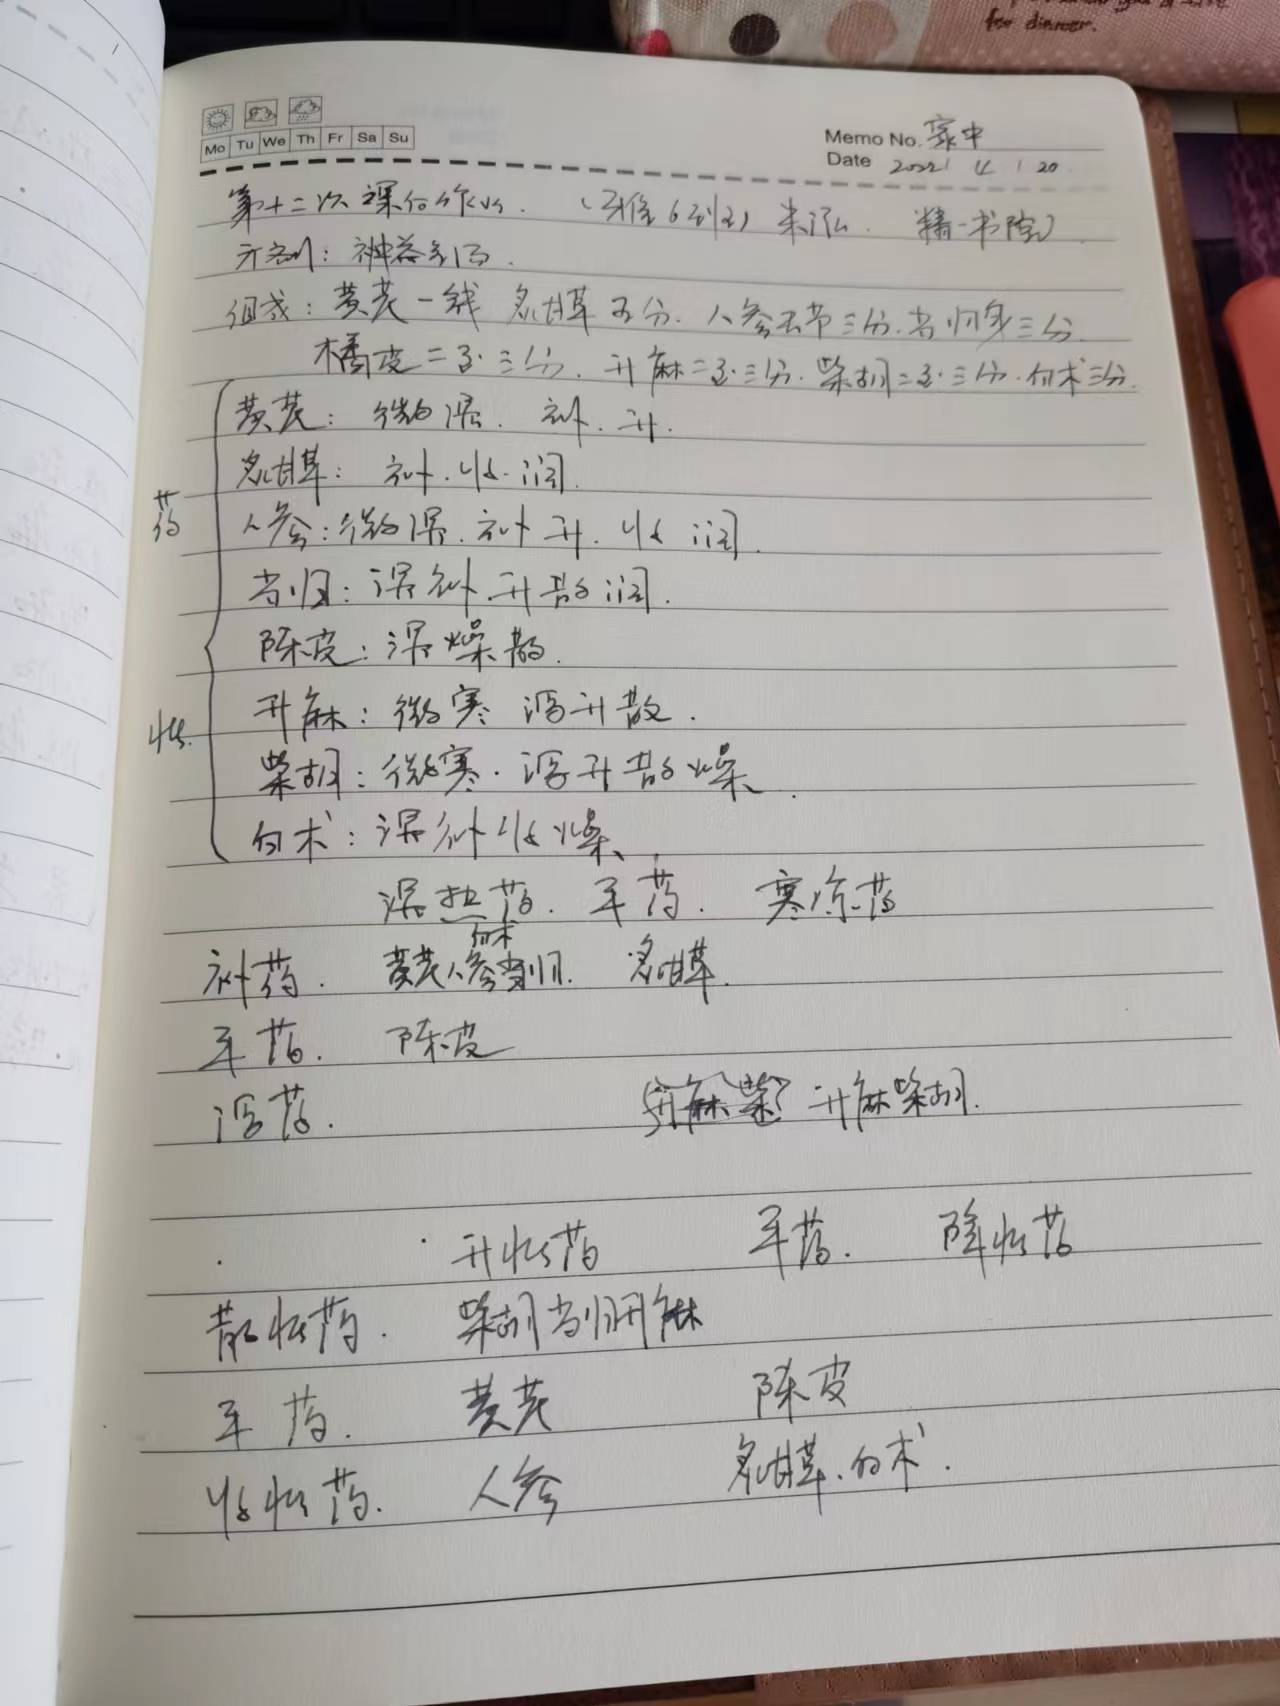 for dinner.
Mo Tu We Th Fr Sa Su
Memo No. 家中
Date 2022 4 20
第十二次课后作业. 朱泓. 精一书院)
方剂:
组成: 黄芪一钱 炙甘草五分. 人参去芦三分. 当归身三分.
橘皮二至三分. 升麻二至三分. 柴胡二至三分. 白术三分.
药性
黄芪: 微温. 补. 升.
炙甘草: 补. 收. 润.
人参: 微温. 补 升. 收 润.
当归: 温补. 升散润.
陈皮: 温燥散.
升麻: 微寒 泻升散.
柴胡: 微寒. 泻升散燥.
白术: 温补收燥.
温热药. 平药. 寒凉药
白术
补药. 黄芪人参当归. 炙甘草.
平药. 陈皮
泻药. 升麻柴 升麻柴胡.
升性药 平药. 降性药
散性药. 柴胡当归升麻
平药. 黄芪 陈皮
收性药. 人参 炙甘草. 白术.